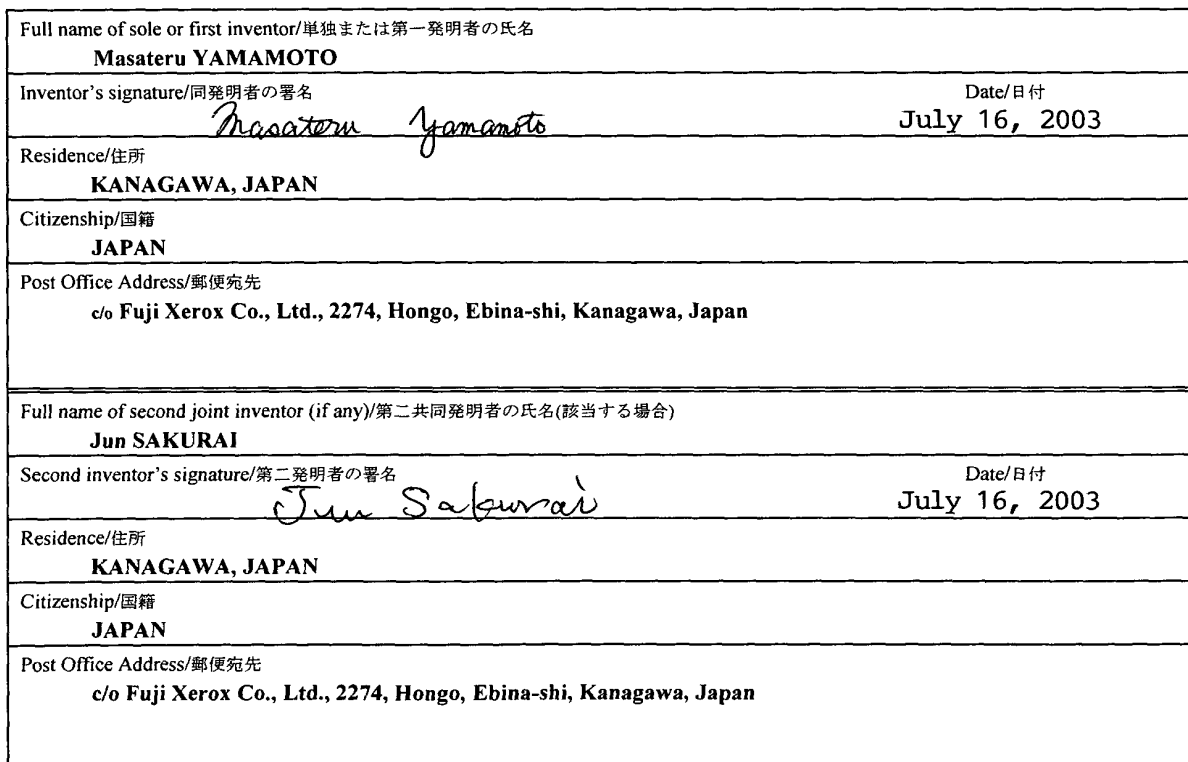 Full name of sole or first inventor/単独または第一発明者の氏名
Masateru YAMAMOTO
Inventor's signature/同発明者の署名 Date/日付
Masateru Yamamoto July 16, 2003
Residence/住所
KANAGAWA, JAPAN
Citizenship/国籍
JAPAN
Post Office Address/郵便宛先
c/o Fuji Xerox Co., Ltd., 2274, Hongo, Ebina-shi, Kanagawa, Japan
Full name of second joint inventor (if any)/第二共同発明者の氏名(該当する場合)
Jun SAKURAI
Second inventor's signature/第二発明者の署名 Date/日付
Jun Sakurai July 16, 2003
Residence/住所
KANAGAWA, JAPAN
Citizenship/国籍
JAPAN
Post Office Address/郵便宛先
c/o Fuji Xerox Co., Ltd., 2274, Hongo, Ebina-shi, Kanagawa, Japan